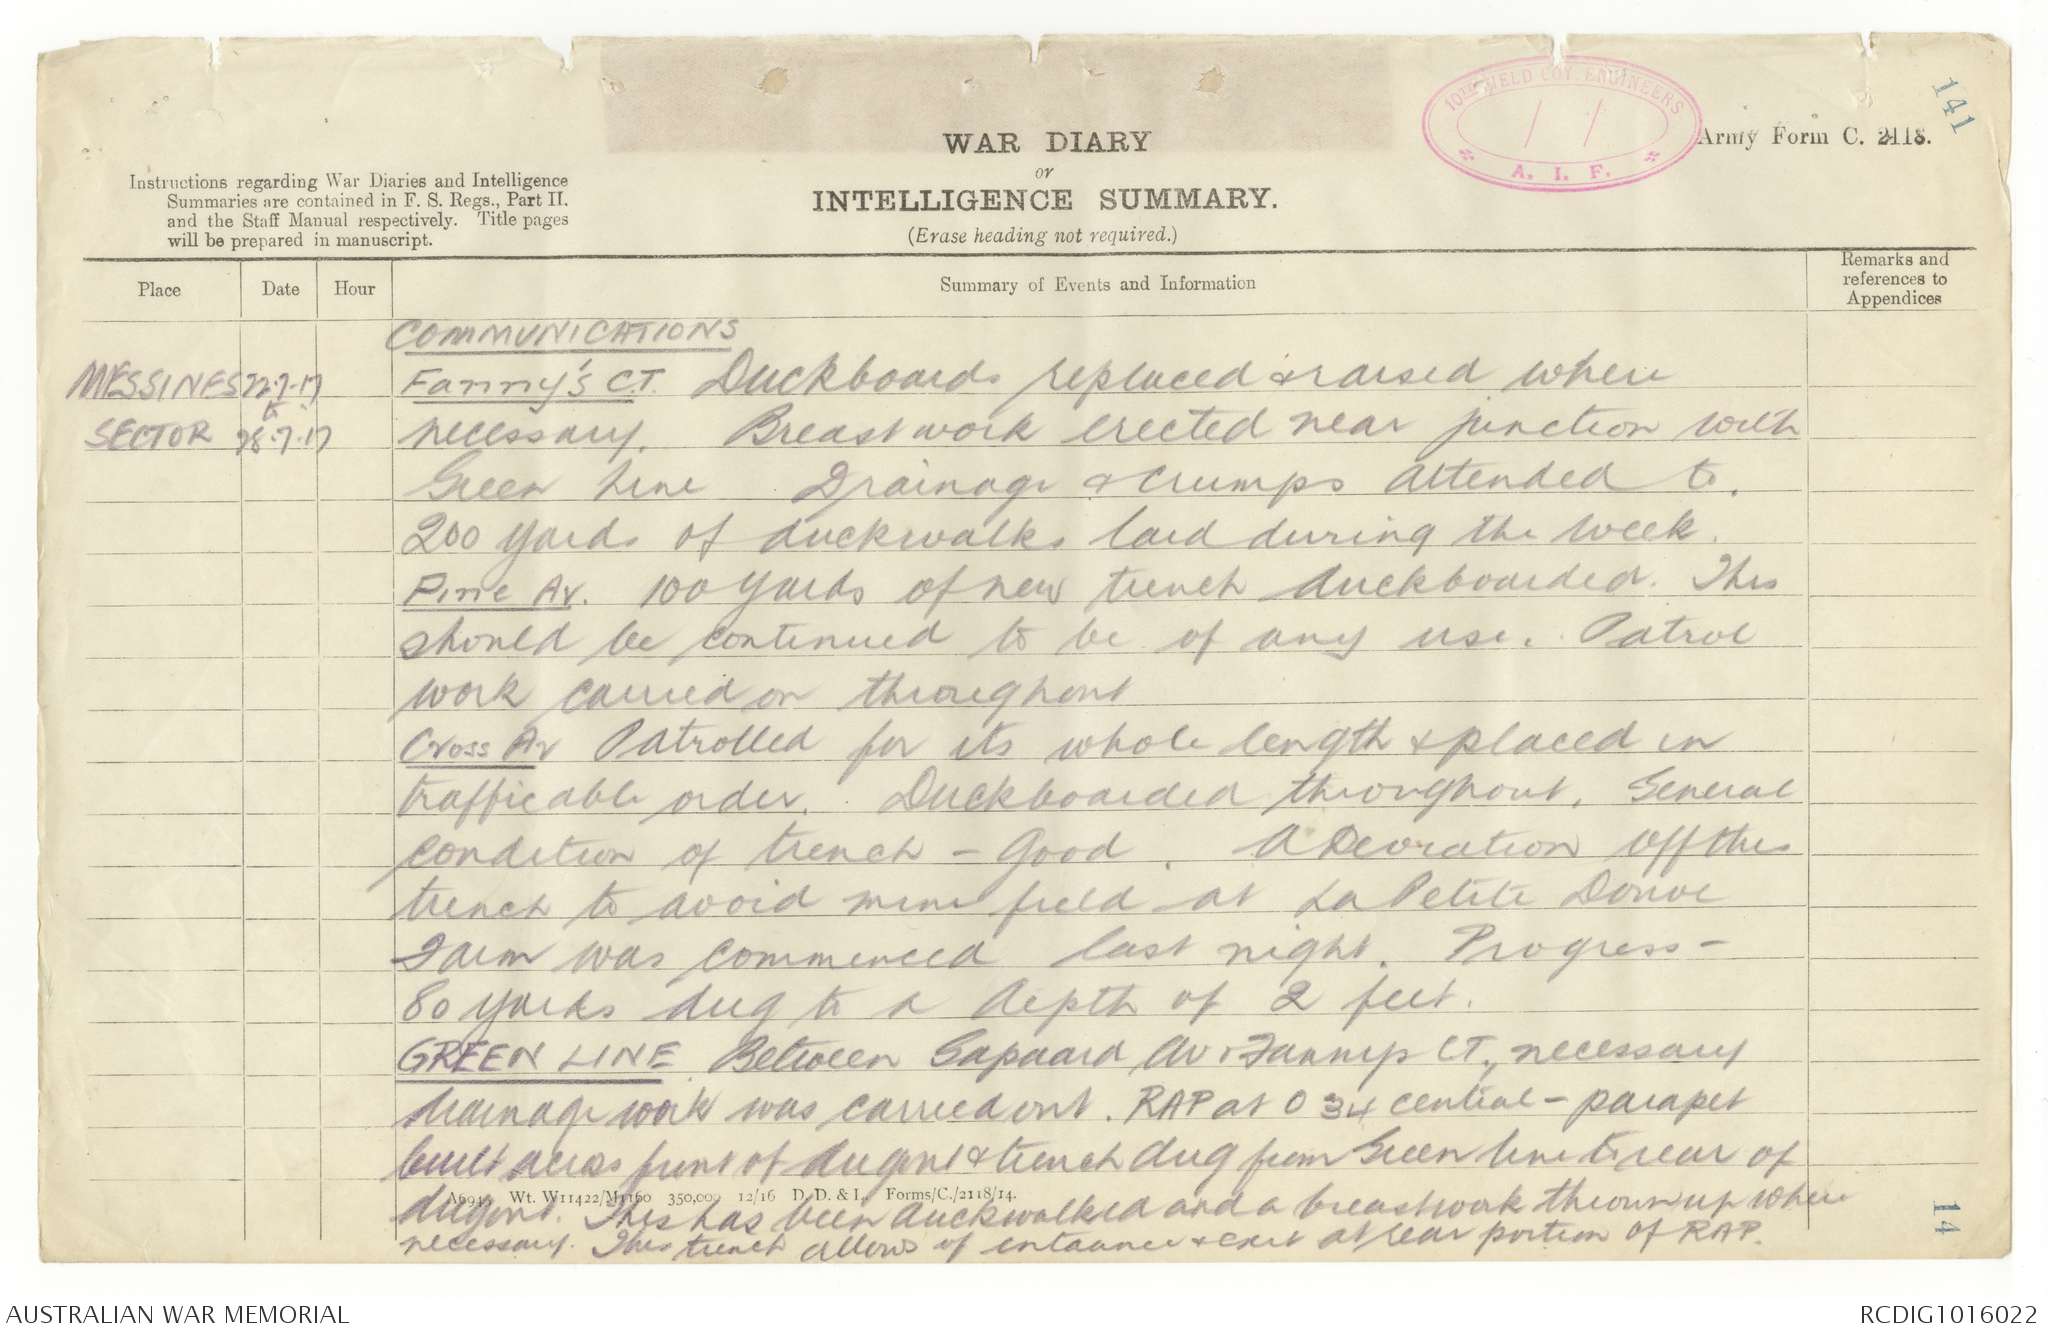 10TH FIELD COY. ENGINEERS
A. I. F.
141
Army Form C. 2118.
WAR DIARY
or
INTELLIGENCE SUMMARY.
(Erase heading not required.)
Instructions regarding War Diaries and Intelligence
Summaries are contained in F. S. Regs., Part II.
and the Staff Manual respectively. Title pages
will be prepared in manuscript.
Place
Date
Hour
Summary of Events and Information
Remarks and
references to
Appendices
COMMUNICATIONS
MESSINES 22.7.17 Fanny's C.T. Duckboards replaced & raised where
to
SECTOR 28.7.17 necessary. Breastwork erected near junction with
Green Line Drainage & crumps attended to.
200 yards of duckwalks laid during the week.
Pine Av. 100 yards of new trench duckboarded. This
should be continued to be of any use. Patrol
work carried on throughout
Cross Av Patrolled for its whole length & placed in
trafficable order. Duckboarded throughout. General
condition of trench – Good. A Deviation off this
trench to avoid mine field at La Petite Douve
Farm was commenced last night. Progress –
80 yards dug to a depth of 2 feet.
GREEN LINE Between Gapaard Av & Fannys CT., necessary
drainage work was carried out. RAP at O 34 central – parapet
built across front of dugout & trench dug from Green line to rear of
A6945 Wt. W11422/M1160 350,000 12/16 D. D. & L. Forms/C./2118/14.
dugout. This has been duckwalked and a breastwork thrown up where
necessary. This trench allows of entrance & exit at rear portion of RAP.
14
AUSTRALIAN WAR MEMORIAL
RCDIG1016022